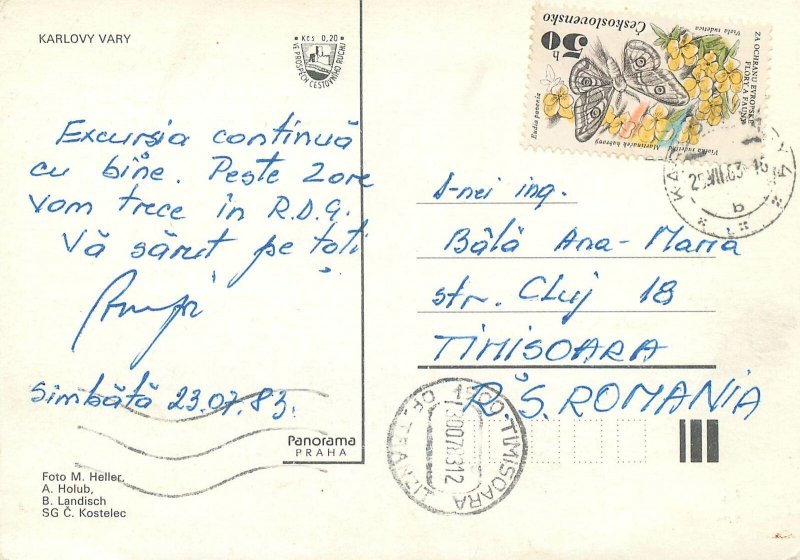 KARLOVY VARY
Kčs 0,20
VE PROSPĚCH CESTOVNÍHO RUCHU
Excursia continuă
cu bine. Peste 2 ore
vom trece în R.D.G.
Vă sărut pe toți
Sîmbătă 23.07.83.
Panorama
PRAHA
Foto M. Heller,
A. Holub,
B. Landisch
SG Č. Kostelec
Československo
50 h
ZA OCHRANU EVROPSKÉ
FLÓRY A FAUNY
Viola sudetica
Eudia pavonia
Violka sudetská
Martináček habrový
b
D-nei ing.
Bâlă Ana-Maria
str. Cluj 18
TIMISOARA
R.S. ROMANIA
1900 TIMISOARA